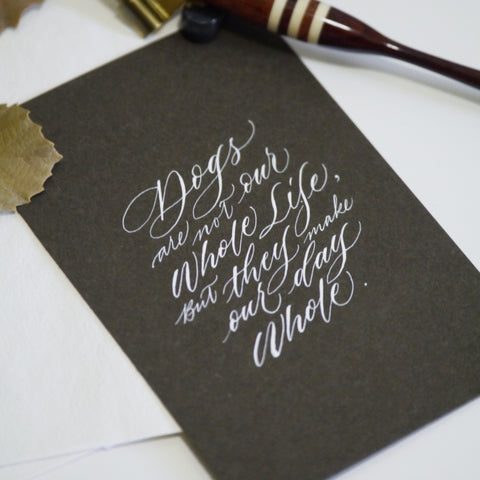 Dogs
are not our
Whole Life,
But they make
our day
Whole.